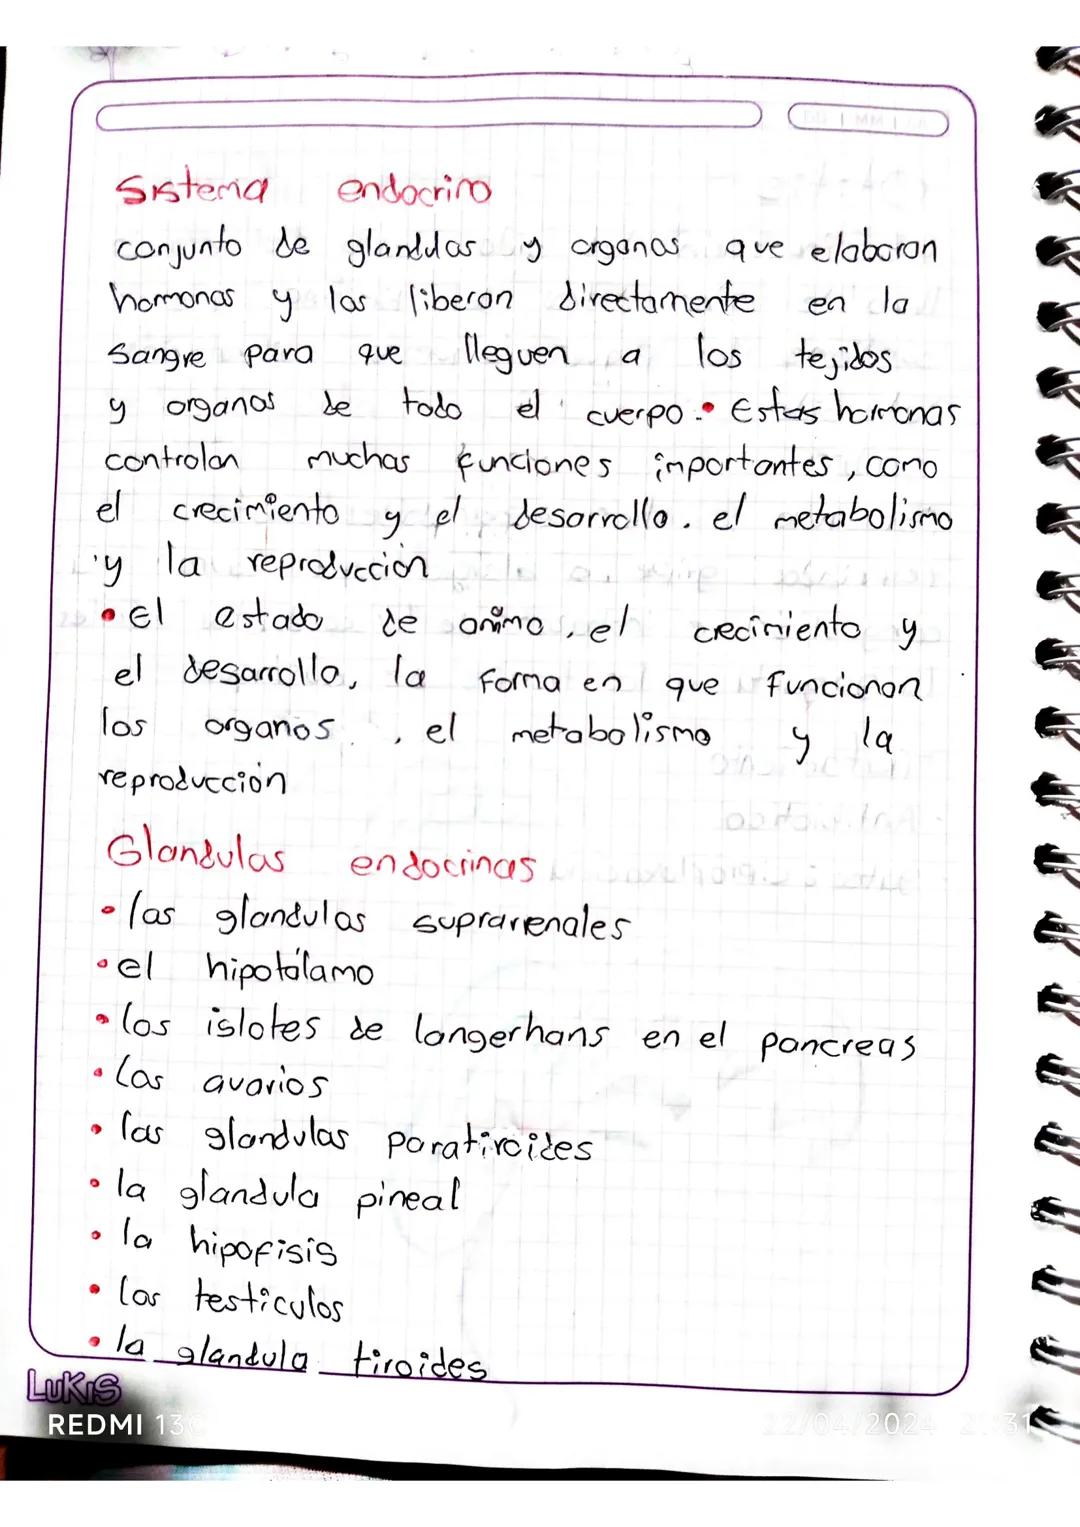 DD | MM |
Sistema endocrino
conjunto de glandulas y organos que elaboran
hormonas y las liberan directamente en la
sangre para que lleguen a los tejidos
y organos de todo el cuerpo. • Estas hormonas
controlan muchas funciones importantes, como
el crecimiento y el desarrollo. el metabolismo
y la reproducción
• El estado de animo, el crecimiento y
el desarrollo, la forma en que funcionan
los organos, el metabolismo y la
reproducción
Glandulas endocrinas
• las glandulas suprarrenales
• el hipotálamo
• los islotes de langerhans en el pancreas
• Los avarios
• las glandulas paratiroides
• la glandula pineal
• la hipofisis
• los testiculos
• la glandula tiroides
LUKIS
REDMI 13C
22/04/2024 21:31